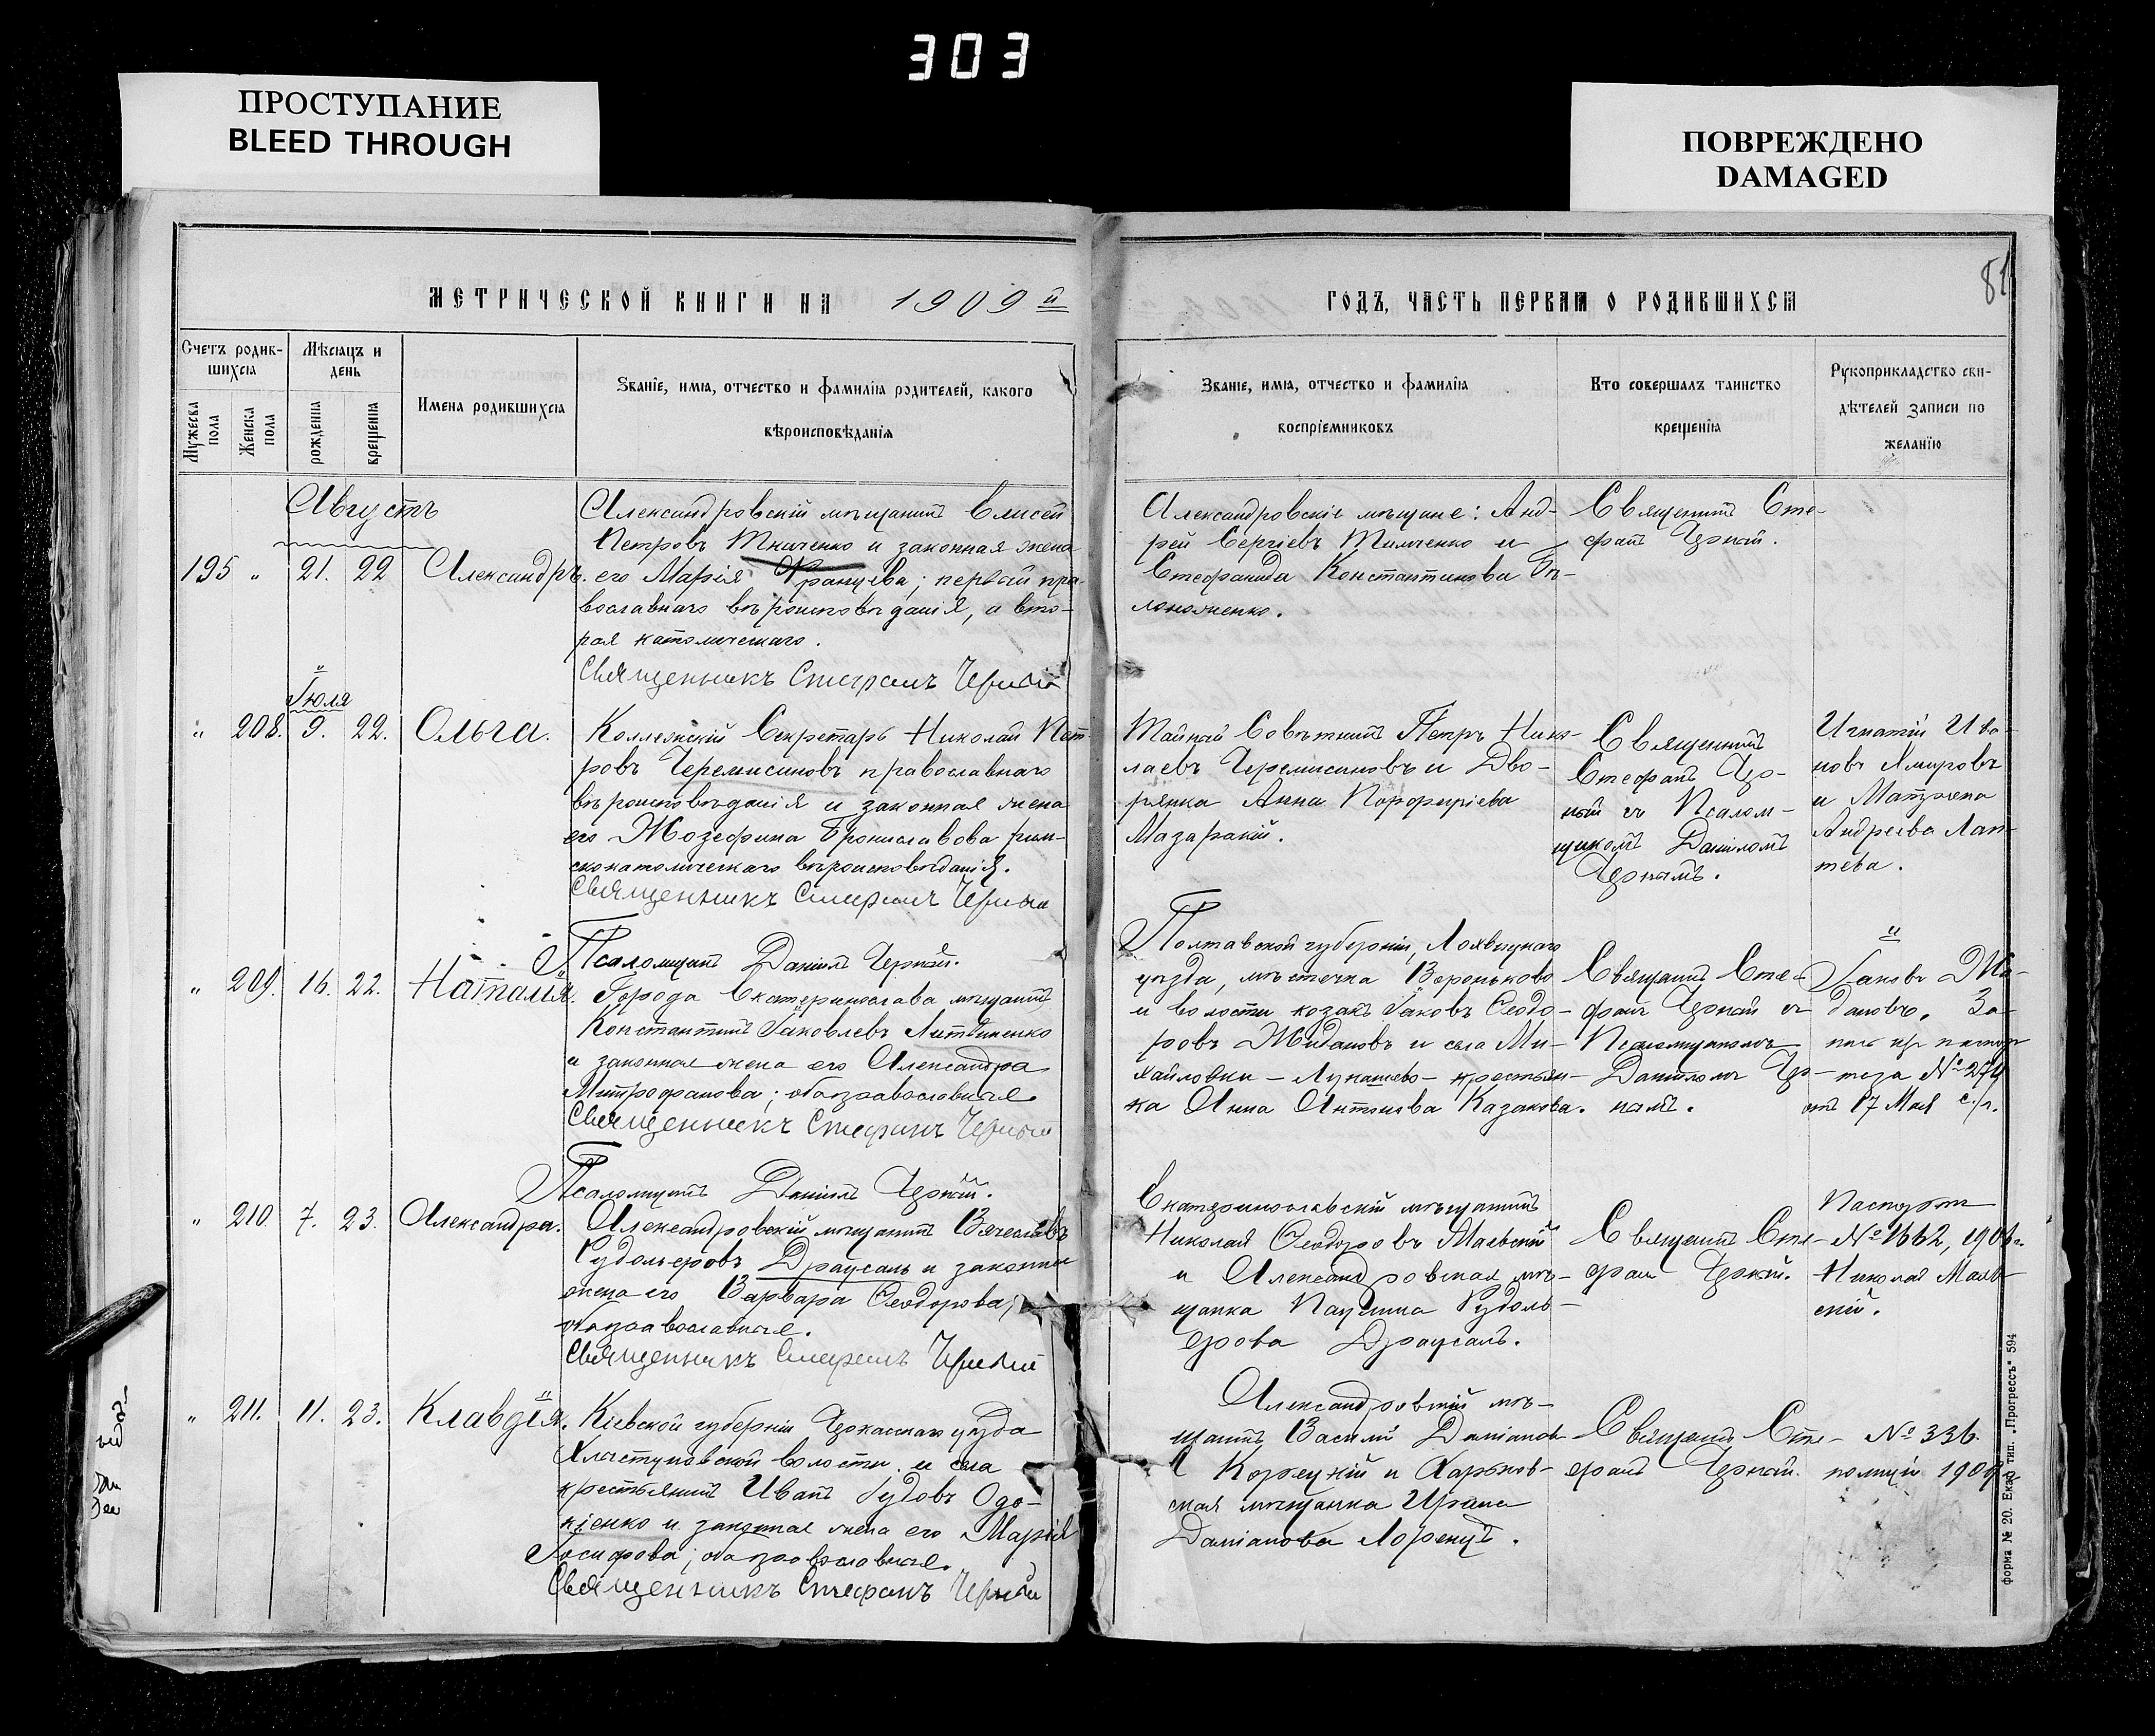 303
ПРОСТУПАНИЕ
BLEED THROUGH
ПОВРЕЖДЕНО
DAMAGED
81
МЕТРИЧЕСКОЙ КНИГИ НА 1909й
ГОДЪ, ЧАСТЬ ПЕРВАЯ О РОДИВШИХСЯ
Счетъ родив-
шихся
Мужеска пола
Женска пола
Мѣсяцъ и
день
рожденія
крещенія
Имена родившихся
Званіе, имя, отчество и фамилія родителей, какого
вѣроисповѣданія
Званіе, имя, отчество и фамилія
воспріемниковъ
Кто совершалъ таинство
крещенія
Рукоприкладство сви-
дѣтелей записи по
желанію
Августъ
195 " 21. 22 Александръ.
Александровскій мѣщанинъ Елисей
Петровъ Ткаченко и законная жена
его Марія Францева; первый пра-
вославнаго вѣроисповѣданія, а вто-
рая католическаго.
Священникъ Стефанъ Черный
Александровскіе мѣщане: Анд-
рей Сергіевъ Тимченко и
Стефанида Константинова Бѣ-
лоноженко.
Священникъ Сте-
фанъ Черный.
Іюля
" 208. 9. 22. Ольга.
Коллежскій Секретарь Николай Пет-
ровъ Черемисиновъ православнаго
вѣроисповѣданія и законная жена
его Жозефина Брониславова рим-
скокатолическаго вѣроисповѣданія.
Священникъ Стефанъ Черный
Псаломщикъ Даніилъ Черный.
Тайный Совѣтникъ Петръ Нико-
лаевъ Черемисиновъ и Дво-
рянка Анна Порфиріева
Мазаракій.
Священникъ
Стефанъ Чер-
ный съ Псалом-
щикомъ Даніиломъ
Чернымъ.
Игнатій Ива-
новъ
и Матрена
Андреева Лап-
тева.
" 209. 16. 22. Наталія.
Города Екатеринослава мѣщанинъ
Константинъ Іаковлевъ Литвиненко
и законная жена его Александра
Митрофанова; оба православные.
Священникъ Стефанъ Черный
Псаломщикъ Даніилъ Черный.
Полтавской губерніи, Лохвицкаго
уѣзда, мѣстечка Вороньково
и волости козакъ Іаковъ Ѳеодо-
ровъ Ждановъ и села Ми-
хайловки-Лукашево-крестьян-
ка Анна Антонова Казакова.
Священникъ Сте-
фанъ Черный съ
Псаломщикомъ
Даніиломъ Чер-
нымъ.
Іаковъ Ж-
дановъ. За-
№ 274
отъ 17 Мая с/г.
" 210. 7. 23. Александра.
Александровскій мѣщанинъ Вячеславъ
Рудольфовъ Драусаль и законная
жена его Варвара Ѳеодорова;
оба православные.
Священникъ Стефанъ Черный
Екатеринославскій мѣщанинъ
Николай Ѳеодоровъ Маевскій
и Александровская мѣ-
щанка Паулина Рудоль-
фова Драусаль.
Священникъ Сте-
фанъ Черный.
Паспортъ
№ 1662, 1906 г.
Николай Маев-
скій.
" 211. 11. 23. Клавдія.
Кіевской губерніи Черкасскаго уѣзда
Хлыстуновской волости и села
крестьянинъ Иванъ
и законная жена его Марія
Іосифова; оба православные.
Священникъ Стефанъ Черный
Александровскій мѣ-
щанинъ Василій Даміановъ
Корецкій и Харьков-
ская мѣщанка Ирина
Даміанова Лоренцъ.
Священникъ Сте-
фанъ Черный.
№ 336
1909 г.
форма № 20. Екат. тип. „Прогрессъ“ 594